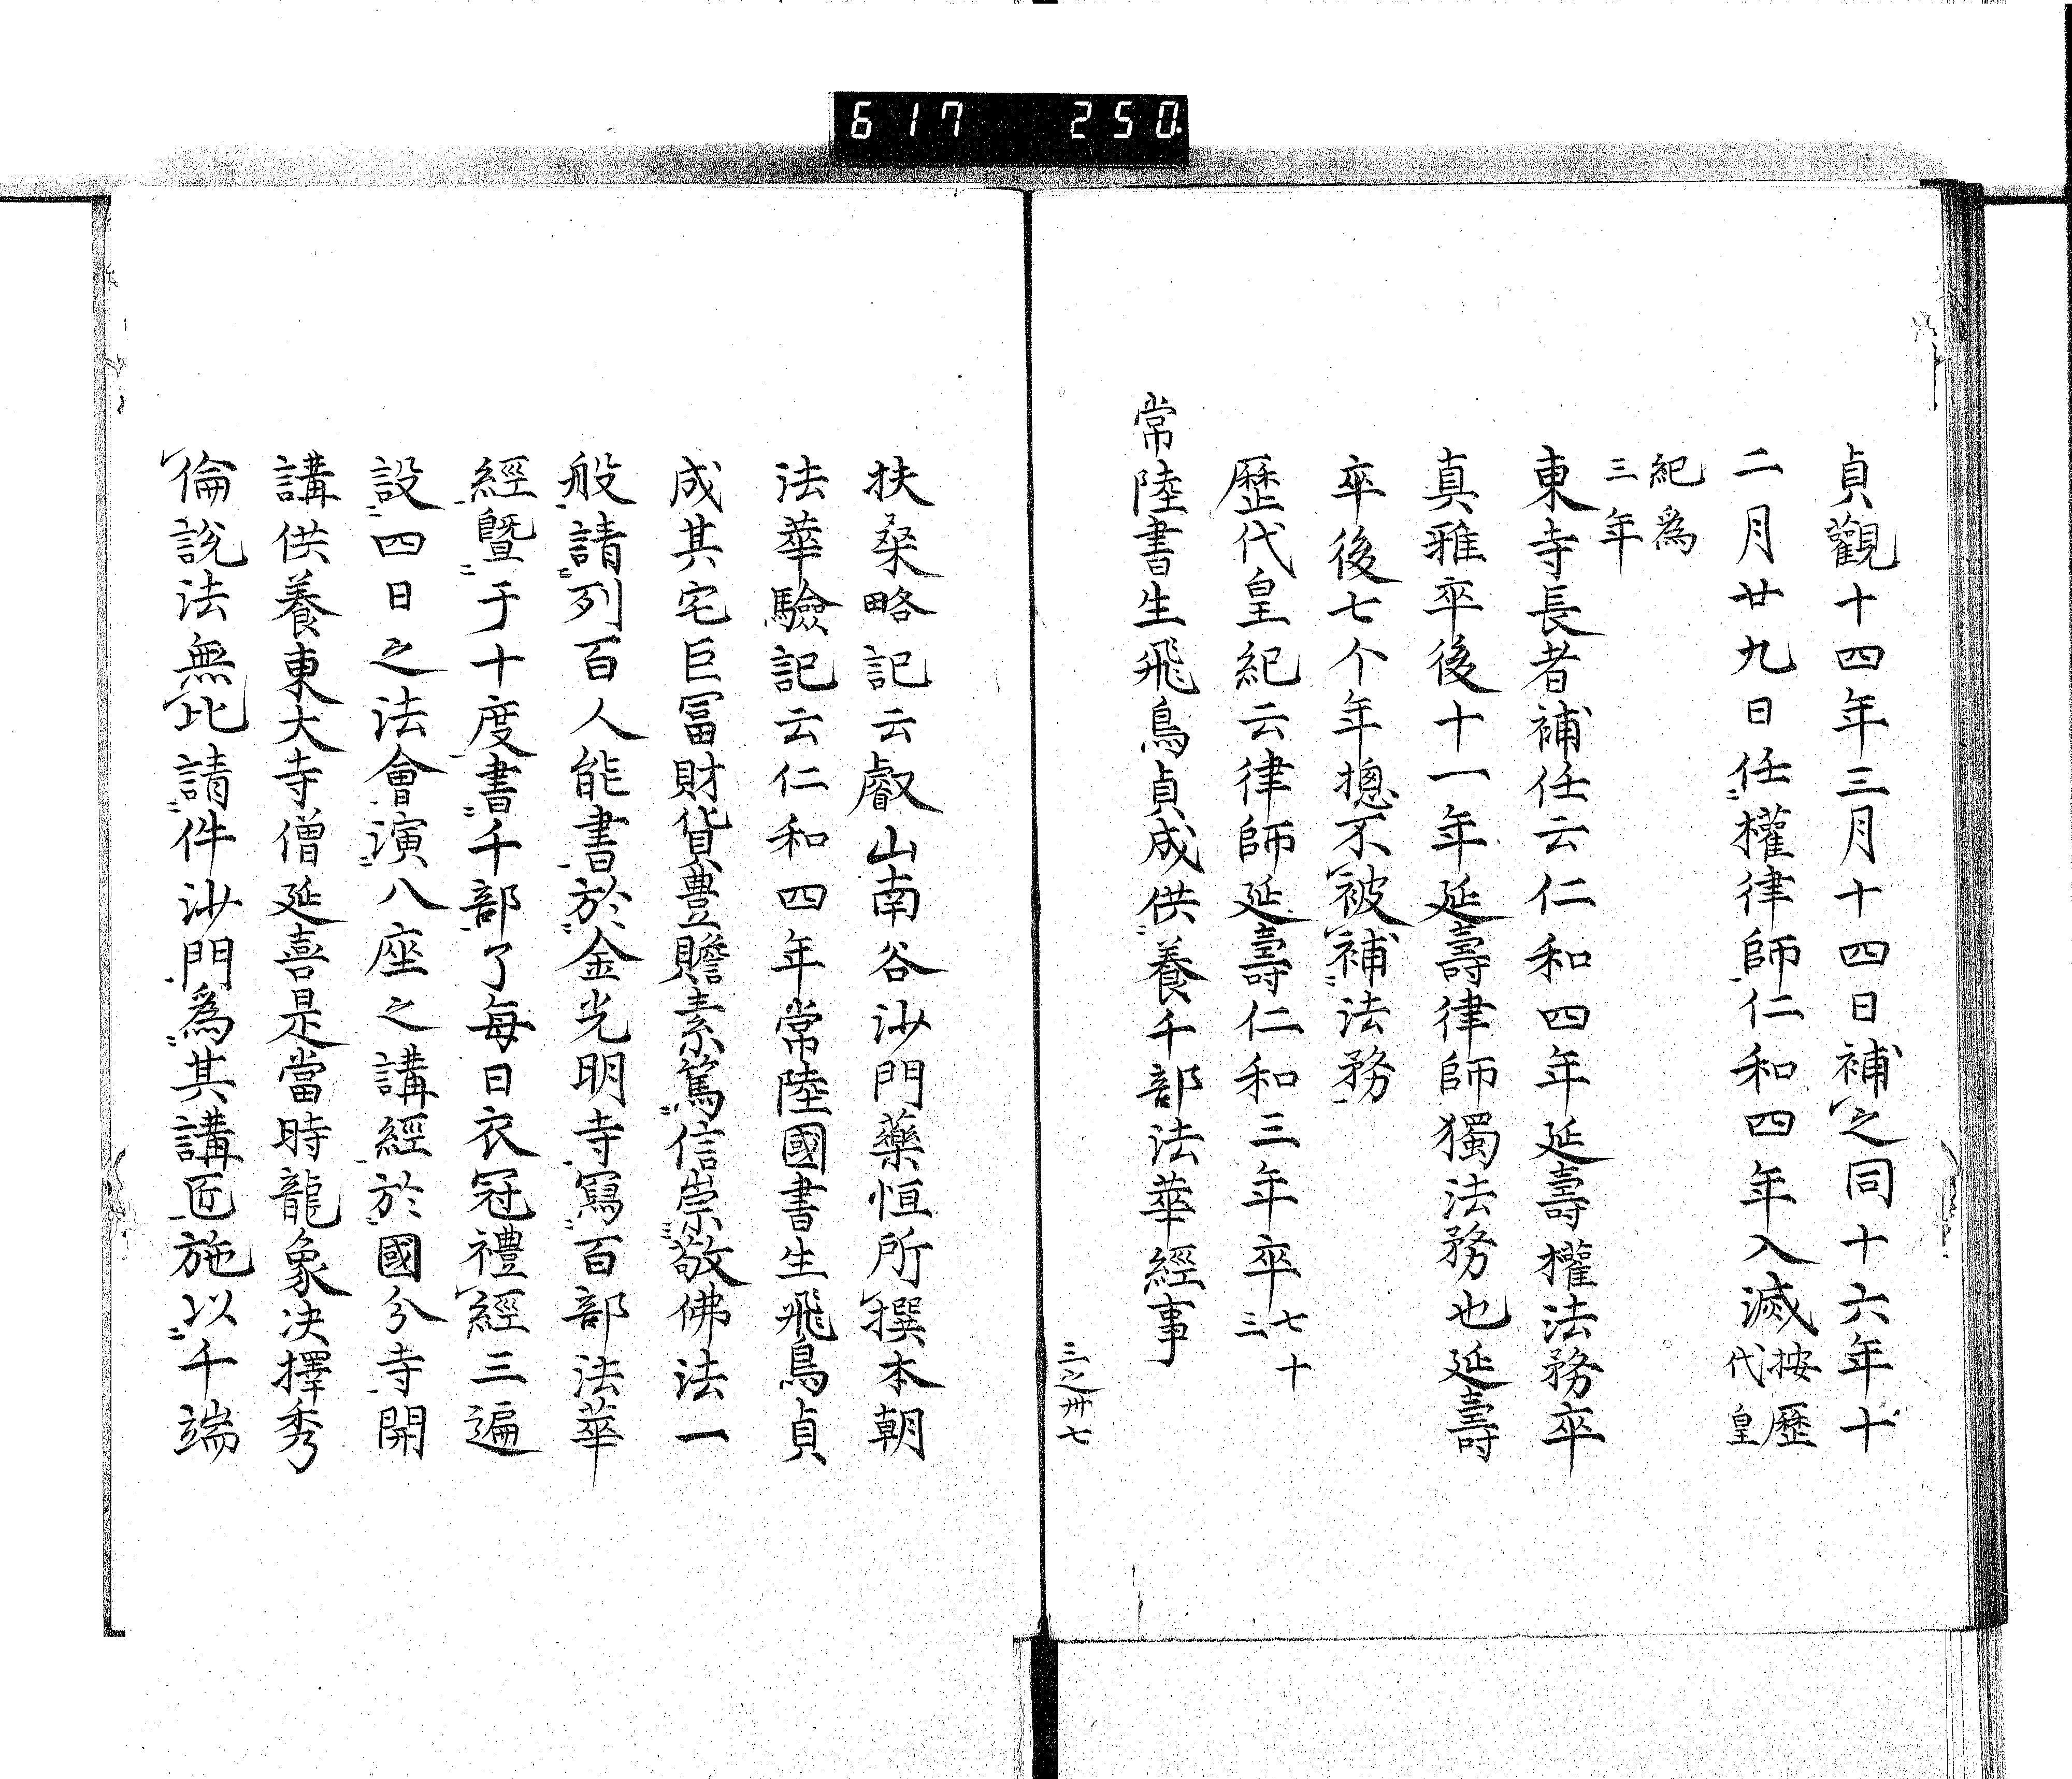 617 250
貞觀十四年三月十四日補之同十六年十
二月廿九日任權律師仁和四年入滅按歷代皇
紀爲三年
東寺長者補任云仁和四年延壽權法務卒
真雅卒後十一年延壽律師獨法務也延壽
卒後七个年摠不被補法務
歷代皇紀云律師延壽仁和三年卒七十三
常陸書生飛鳥貞成供養千部法華經事
三之卅七
扶桑略記云叡山南谷沙門藥恒所撰本朝
法華驗記云仁和四年常陸國書生飛鳥貞
成其宅巨冨財貨豊贍素篤信崇敬佛法一
般請列百人能書於金光明寺寫百部法華
經曁于十度書千部了每日衣冠禮經三遍
設四日之法會演八座之講經於國分寺開
講供養東大寺僧延喜是當時龍象决擇秀
倫說法無比請件沙門爲其講匠施以千端